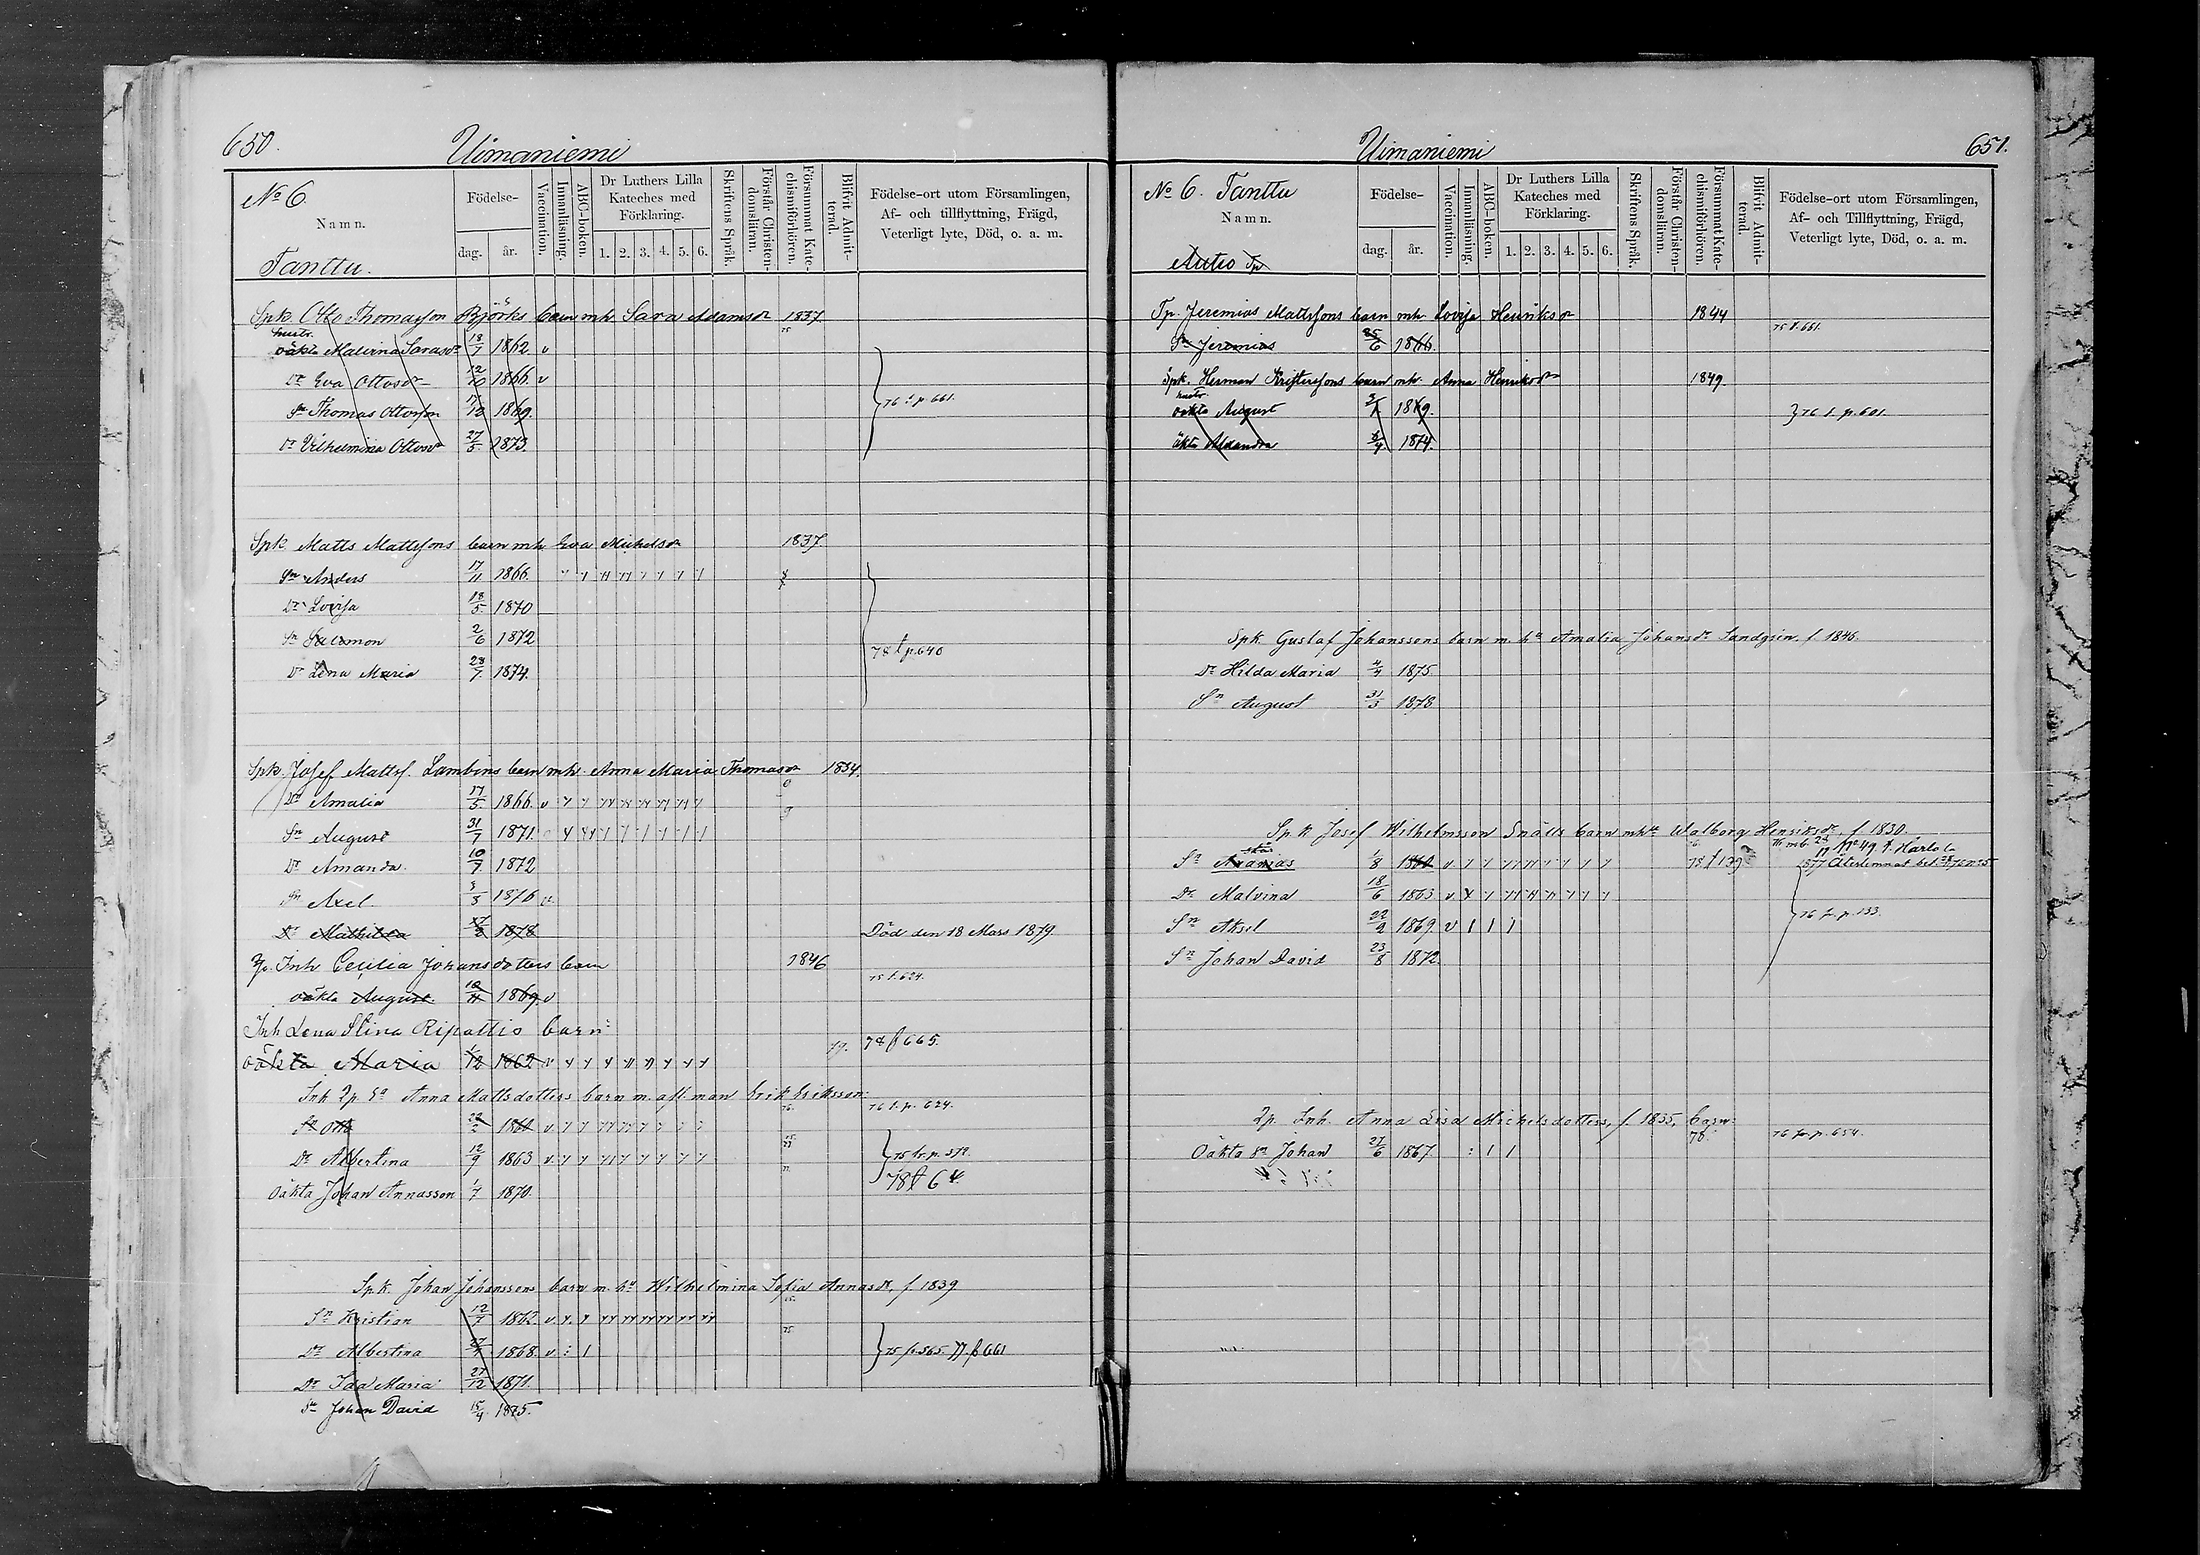 650.
Uimaniemi
No 6.
Namn.
Tanttu.
Födelse-
dag. år.
Vaccination.
Innanläsning.
ABC-boken.
Dr Luthers Lilla Kateches med Förklaring.
1. 2. 3. 4. 5. 6.
Skriftens Språk.
Förstår Christendomsläran.
Försummat Katechismiförhören.
Blifvit Admitterad.
Födelse-ort utom Församlingen,
Af- och tillflyttning, Frägd,
Veterligt lyte, Död, o. a. m.
Spk. Otto Thomasson Björks barn mh Sara Adamsdr 1837
hustr.
oäkta Malvina Sarasdr 18/7 1862 v
Dr Eva Ottosdr 12/10 1866 v
Sn Thomas Ottosson 17/12 1869. 76 f. p. 661.
Dr Vilhelmina Ottosdr 27/5 1873.
Spk Matts Mattssons barn mh Eva Michelsdr 1837
Sn Anders 17/11 1866.
Dr Lovisa 18/5 1870
Sn Salomon 2/6 1872
78 f p. 640
Dr Lena Maria 28/7 1874.
Spk. Josef Mattss. Lambins barn mh. Anna Maria Thomasdr 1834.
Dr Amalia 17/5 1866 v
Sn August 31/7 1871.
Dr Amanda 10/7 1872
Sn Axel 3/3 1876 v.
Dr Mathilda 1878 Död den 18 Mars 1879.
Inh Cecilia Johansdotters barn 1846
75 f. 624.
oäkta August 10/11 1869 v
Inh Lena Stina Ripattis barn:
oäkta Maria 1/12 1862 v 79. 78 f 665.
Inh Anna Mattsdotters barn m. afl. man Erik Eriksson:
76 f. p. 624.
Sn Otto 1860 v
Dr Albertina 12/9 1863 v
78 f 64.
Oäkta Johan Annasson 1/7 1870.
Spk. Johan Johanssons barn m. ha Wilhelmina Sofia Annasdr, f. 1839
Sn Kristian 12/7 1862 v
Dr Albertina 1868 v 75 f. 565. 77. f 661
Dr Ida Maria 27/12 1871.
Sn Johan David 15/4 1875.
Uimaniemi
651.
No 6. Tanttu
Namn.
Autio Tp
Födelse-
dag. år.
Vaccination.
Innanläsning.
ABC-boken.
Dr Luthers Lilla Kateches med Förklaring.
1. 2. 3. 4. 5. 6.
Skriftens Språk.
Förstår Christendomsläran.
Försummat Katechismiförhören.
Blifvit Admitterad.
Födelse-ort utom Församlingen,
Af- och Tillflyttning, Frägd,
Veterligt lyte, Död, o. a. m.
Tp. Jeremias Mattssons barn mh Lovisa Henriksdr 1844
75 f. 661.
Sn Jeremias 25/6 1866.
Spk. Herman Kristerssons barn mh. Anna Henriksdr 1849
hustr.
oäkta August 3/1 1869.
76 f. p. 601.
äkta Alexandra 1874.
Spk. Gustaf Johanssons barn m. ha Amalia Johansdr Sandgrin, f. 1846.
Dr Hilda Maria 4/4 1875
Sn August 31/3 1878
Spk Josef Wilhelmsson Snälls barn mh Walborg Henriksdr, f. 1830.
Sn Ananias 1/8 1860 v 78 f 139
Dr Malvina 18/6 1863 v
76 fr. p. 133.
Sn Aksel 22/9 1869 v
Sn Johan David 23/8 1872
2p. Inh. Anna Lisa Michelsdotters, f. 1835, barn:
76 76 fr. p. 654.
Oäkta sn Johan 27/6 1867